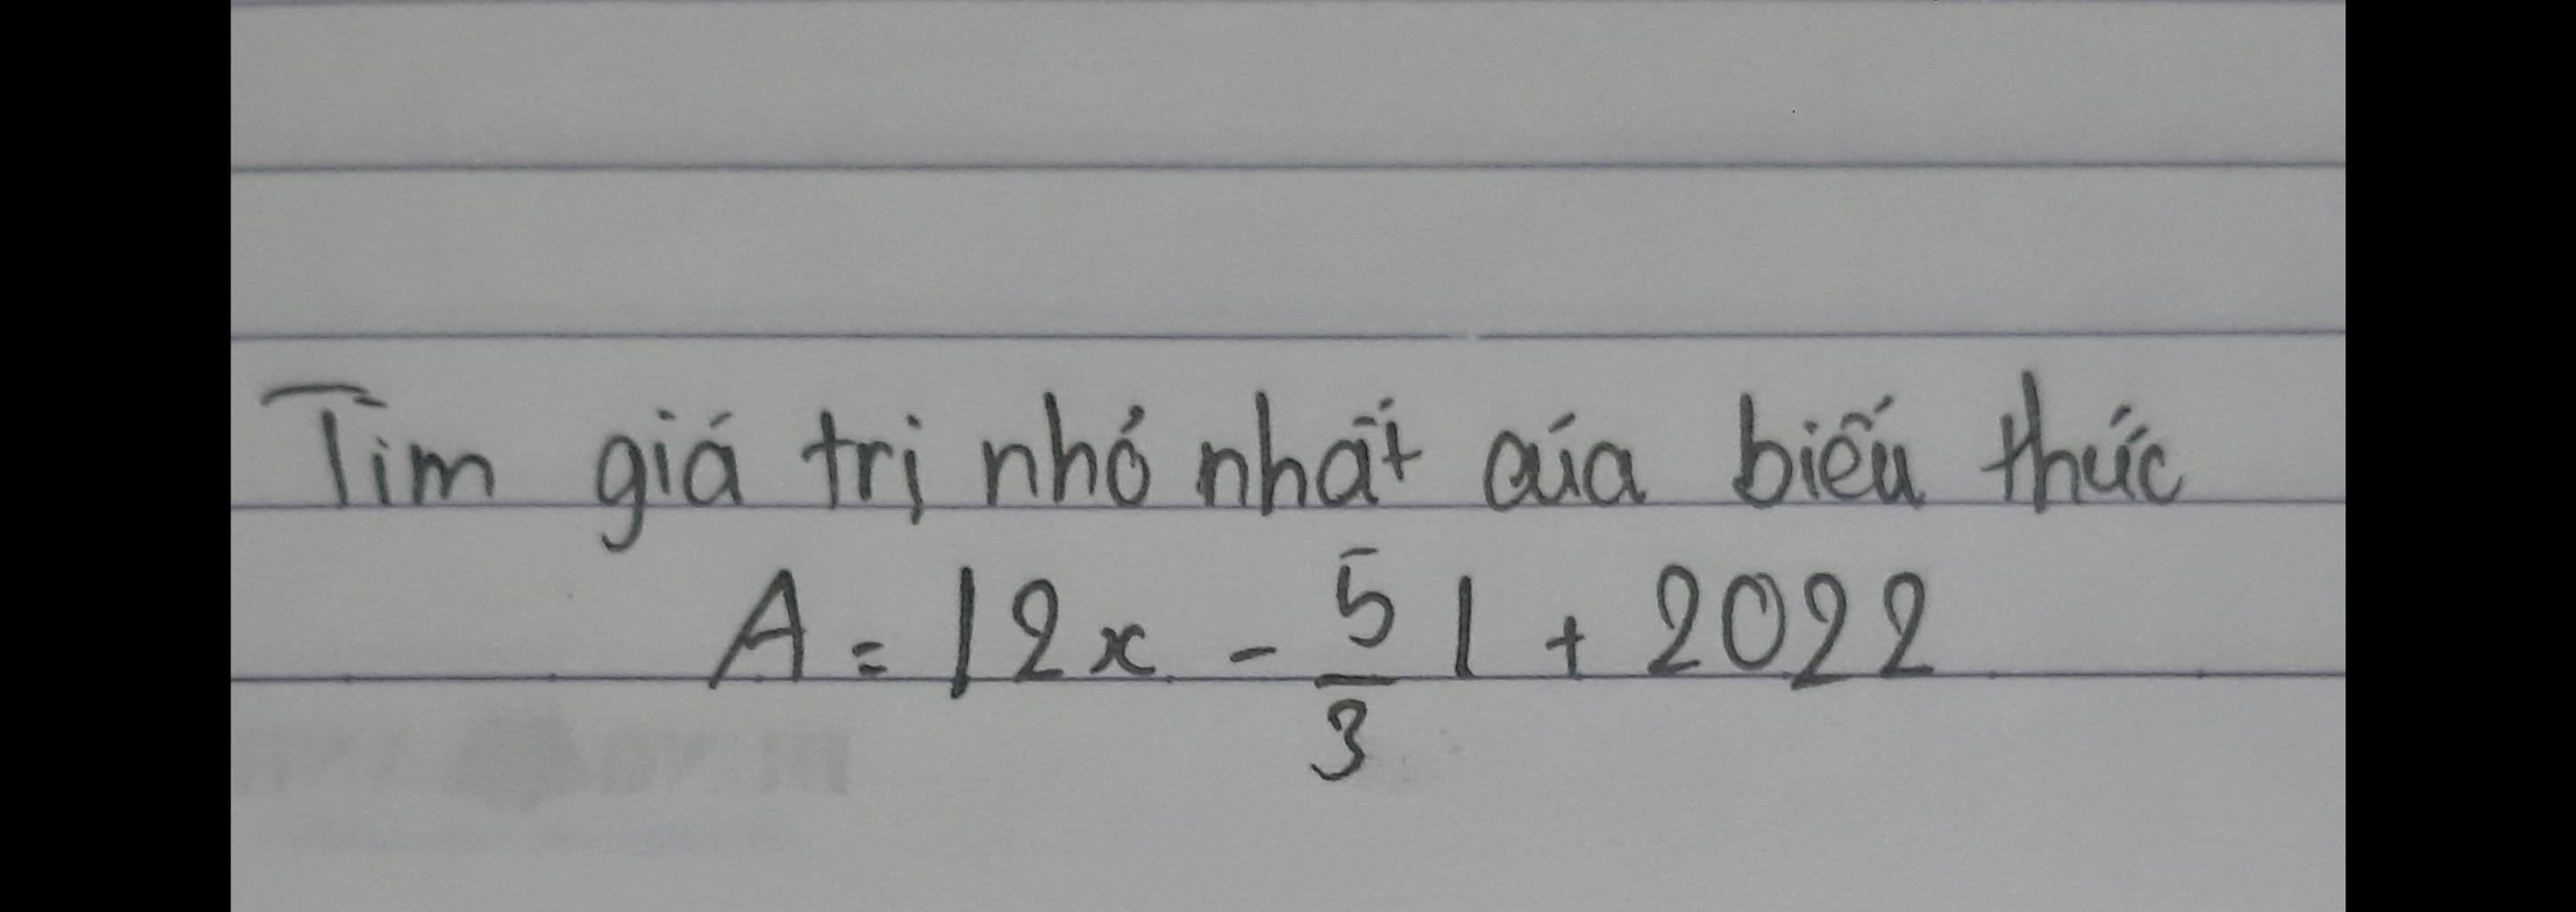 Tìm giá trị nhỏ nhất của biểu thức
A = |2x - \frac{5}{3}| + 2022